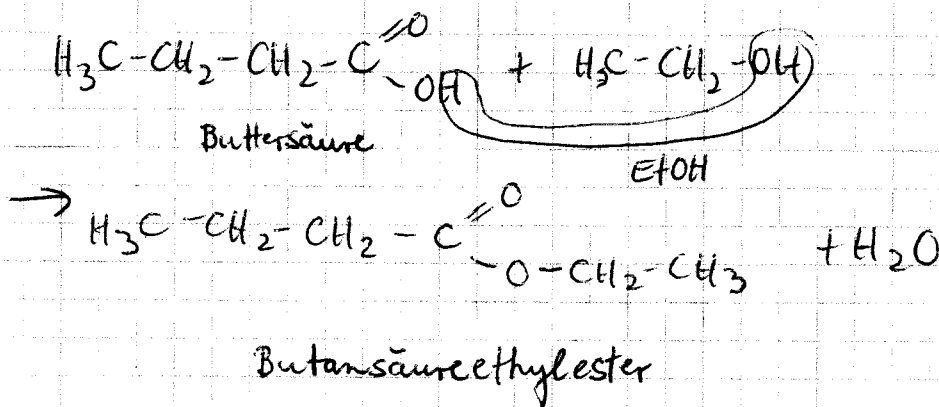 H₃C-CH₂-CH₂-C=O-OH + H₃C-CH₂-OH
Buttersäure
EtOH
→ H₃C-CH₂-CH₂-C=O-O-CH₂-CH₃ + H₂O
Butansäureethylester